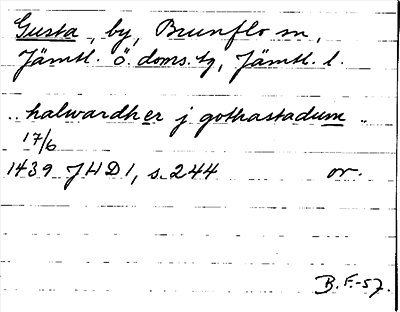 Gusta, by, Brunflo sn,
Jämtl. ö. doms. tg, Jämtl. l.
.. halwardher j gothastadum ..
17/6
1439 JHD1, s. 244 or.
B.F.-57.